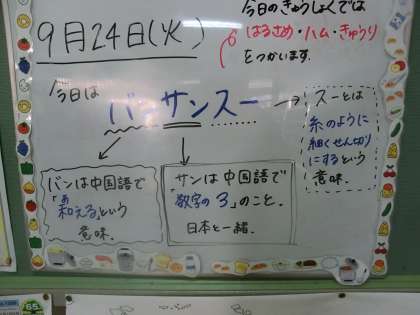 9月24日(火)
今日のきゅうしょくでは
はるさめ・ハム・きゅうり
をつかいます。
今日は
バンサンスー
スーとは
糸のように
細くせん切り
にするという
意味.
バンは中国語で
「和える」という
あ
意味.
サンは中国語で
「数字の3」のこと.
日本と一緒.